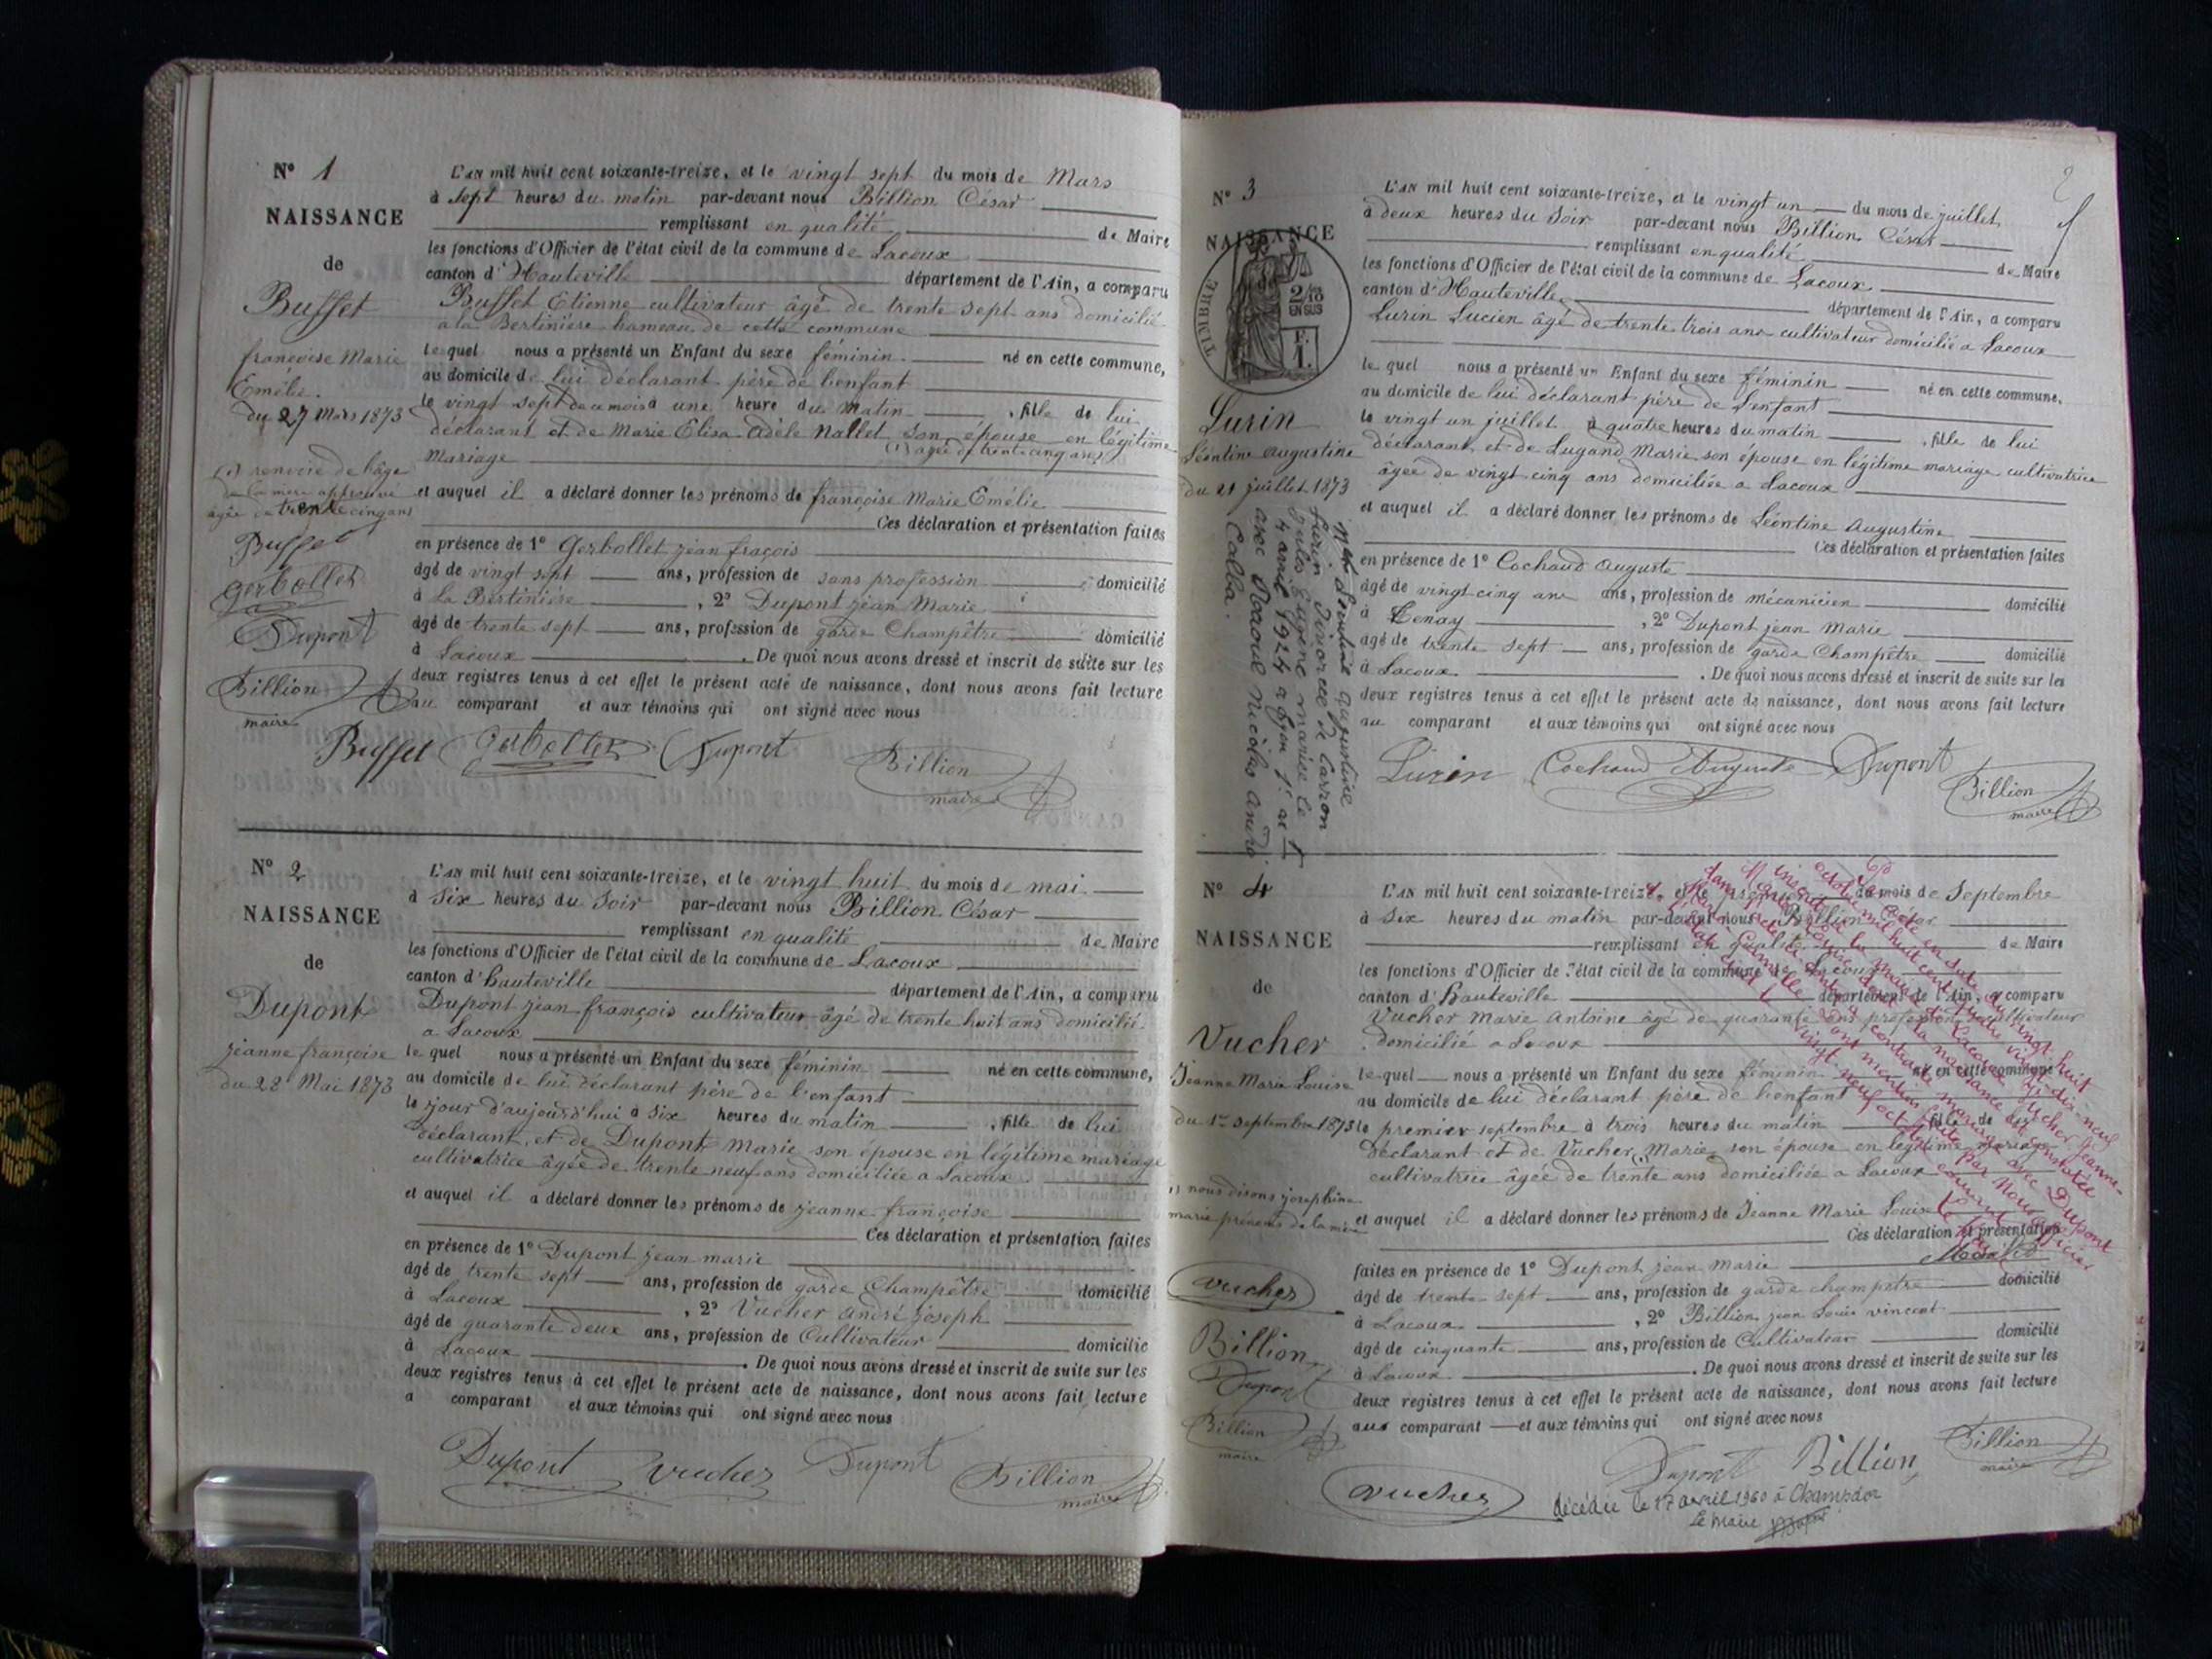 N° 1
NAISSANCE
de
Buffet
françoise Marie
Emélie.
du 27 Mars 1873
(1) renvoie de l'âge
de la mère approuvé
âgée de trente cinq ans
Buffet
Gerbollet
Dupont
Billion
maire
L'AN mil huit cent soixante-treize, et le vingt sept du mois de Mars
à sept heures du matin par-devant nous Billion César
remplissant en qualité de Maire
les fonctions d'Officier de l'état civil de la commune de Lacoux
canton d'Hauteville département de l'Ain, a comparu
Buffet Etienne cultivateur âgé de trente sept ans domicilié
a la Bertinière hameau de cette commune
lequel nous a présenté un Enfant du sexe féminin né en cette commune,
au domicile de lui déclarant père de l'enfant
le vingt sept de ce mois à une heure du matin , fille de lui
déclarant et de Marie Elisa Adèle Nallet son épouse en légitime
mariage (1) agée de trente cinq ans
et auquel il a déclaré donner les prénoms de françoise Marie Emélie
Ces déclaration et présentation faites
en présence de 1° Gerbollet jean fraçois
âgé de vingt sept ans, profession de sans profession domicilié
à La Bertinière , 2° Dupont jean Marie
âgé de trente sept ans, profession de garde Champêtre domicilié
à Lacoux . De quoi nous avons dressé et inscrit de suite sur les
deux registres tenus à cet effet le présent acte de naissance, dont nous avons fait lecture
au comparant et aux témoins qui ont signé avec nous
Buffet Gerbollet Dupont Billion
maire
N° 2
NAISSANCE
de
Dupont
jeanne françoise
du 28 Mai 1873
L'AN mil huit cent soixante-treize, et le vingt huit du mois de mai
à six heures du soir par-devant nous Billion César
remplissant en qualité de Maire
les fonctions d'Officier de l'état civil de la commune de Lacoux
canton d'hauteville département de l'Ain, a comparu
Dupont jean françois cultivateur âgé de trente huit ans domicilié
a Lacoux
le quel nous a présenté un Enfant du sexe féminin né en cette commune,
au domicile de lui déclarant père de l'enfant
le jour d'aujourd'hui à six heures du matin , fille de lui
déclarant et de Dupont Marie son épouse en légitime mariage
cultivatrice âgée de trente neuf ans domiciliée a Lacoux
et auquel il a déclaré donner les prénoms de jeanne françoise
Ces déclaration et présentation faites
en présence de 1° Dupont jean marie
âgé de trente sept ans, profession de garde Champêtre domicilié
à Lacoux , 2° Vucher andré joseph
âgé de quarante deux ans, profession de Cultivateur domicilié
à Lacoux . De quoi nous avons dressé et inscrit de suite sur les
deux registres tenus à cet effet le présent acte de naissance, dont nous avons fait lecture
a comparant et aux témoins qui ont signé avec nous
Dupont Vucher Dupont Billion
maire
2
N° 3
NAISSANCE
TIMBRE
2/10
EN SUS
F.
1.
Lurin
Léontine augustine
du 21 juillet 1873
Lurin Léontine augustine
divorcée de Carron
Jules Eugène mariée le
4 avril 1924 a Lyon 1er ar
avec Raoul Nicolas André
Calba.
L'AN mil huit cent soixante-treize, et le vingt un du mois de juillet
à deux heures du soir par-devant nous Billion César
remplissant en qualité de Maire
les fonctions d'Officier de l'état civil de la commune de Lacoux
canton d'Hauteville département de l'Ain, a comparu
Lurin Lucien âgé de trente trois ans cultivateur domicilié a Lacoux
le quel nous a présenté un Enfant du sexe féminin né en cette commune,
au domicile de lui déclarant père de l'enfant
le vingt un juillet à quatre heures du matin , fille de lui
déclarant et de Lugand Marie son épouse en légitime mariage cultivatrice
âgée de vingt cinq ans domiciliée a Lacoux
et auquel il a déclaré donner les prénoms de Léontine Augustine
Ces déclaration et présentation faites
en présence de 1° Cochaud Auguste
âgé de vingt cinq ans ans, profession de mécanicien domicilié
à Tenay , 2° Dupont jean Marie
âgé de trente sept ans, profession de garde Champêtre domicilié
à Lacoux . De quoi nous avons dressé et inscrit de suite sur les
deux registres tenus à cet effet le présent acte de naissance, dont nous avons fait lecture
au comparant et aux témoins qui ont signé avec nous
Lurin Cochaud Auguste Dupont Billion
maire
N° 4
NAISSANCE
de
Vucher
Jeanne Marie Louise
du 1er Septembre 1873
1) nous disons josephine
marie prénoms de la mère
Vucher
Billion
Dupont
Billion
maire
L'AN mil huit cent soixante-treize, et le premier du mois de Septembre
à six heures du matin par-devant nous Billion César
remplissant en qualité de Maire
les fonctions d'Officier de l'état civil de la commune de Lacoux
canton d'hauteville département de l'Ain, a comparu
Vucher Marie Antoine âgé de quarante ans profession cultivateur
domicilié a Lacoux
le quel nous a présenté un Enfant du sexe féminin né en cette commune
au domicile de lui déclarant père de l'enfant
le premier septembre à trois heures du matin fille de lui
déclarant et de Vucher Marie son épouse en légitime mariage
cultivatrice âgée de trente ans domiciliée a Lacoux
et auquel il a déclaré donner les prénoms de Jeanne Marie Louise
Ces déclaration et présentation
faites en présence de 1° Dupont jean Marie domicilié
âgé de trente sept ans, profession de garde champêtre
à Lacoux , 2° Billion jean Louis vincent
âgé de cinquante ans, profession de Cultivateur domicilié
à Lacoux . De quoi nous avons dressé et inscrit de suite sur les
deux registres tenus à cet effet le présent acte de naissance, dont nous avons fait lecture
aux comparant et aux témoins qui ont signé avec nous
Dupont Billion Billion
maire
Vucher
décédée le 17 avril 1960 à Champdor
Le Maire